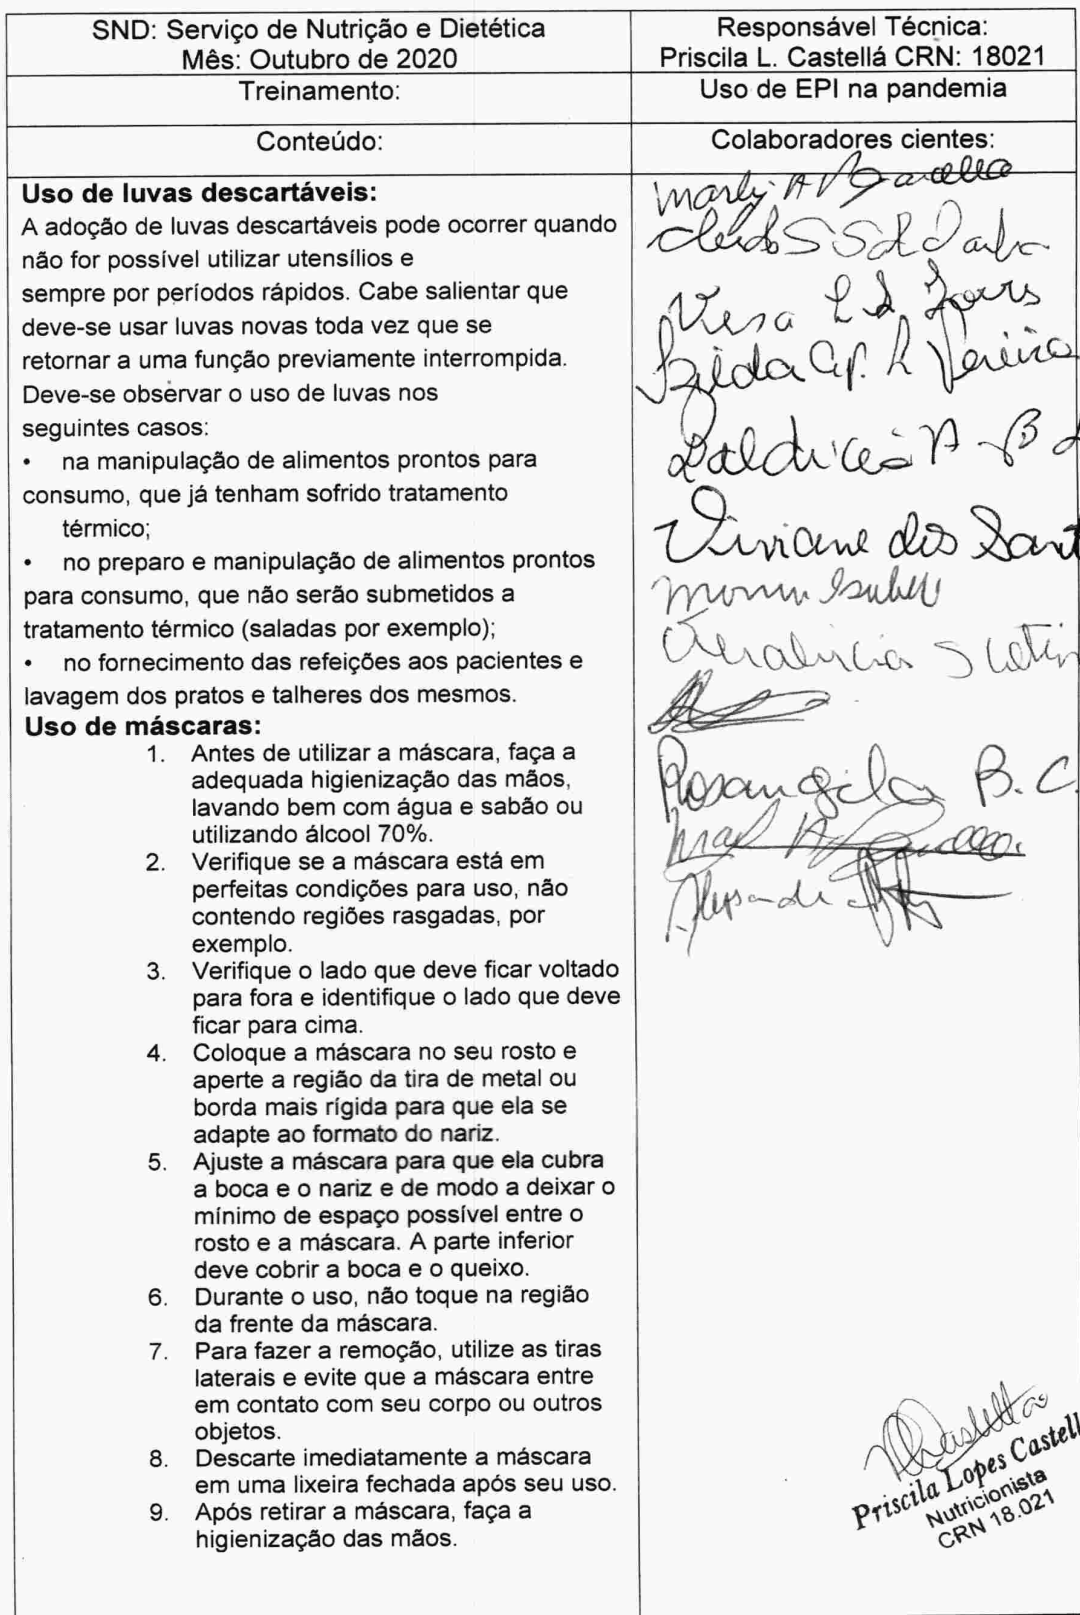 SND: Serviço de Nutrição e Dietética
Mês: Outubro de 2020
Responsável Técnica:
Priscila L. Castellá CRN: 18021
Treinamento:
Uso de EPI na pandemia
Conteúdo:
Colaboradores cientes:
Uso de luvas descartáveis:
A adoção de luvas descartáveis pode ocorrer quando
não for possível utilizar utensílios e
sempre por períodos rápidos. Cabe salientar que
deve-se usar luvas novas toda vez que se
retornar a uma função previamente interrompida.
Deve-se observar o uso de luvas nos
seguintes casos:
• na manipulação de alimentos prontos para
consumo, que já tenham sofrido tratamento
térmico;
• no preparo e manipulação de alimentos prontos
para consumo, que não serão submetidos a
tratamento térmico (saladas por exemplo);
• no fornecimento das refeições aos pacientes e
lavagem dos pratos e talheres dos mesmos.
Uso de máscaras:
1. Antes de utilizar a máscara, faça a
adequada higienização das mãos,
lavando bem com água e sabão ou
utilizando álcool 70%.
2. Verifique se a máscara está em
perfeitas condições para uso, não
contendo regiões rasgadas, por
exemplo.
3. Verifique o lado que deve ficar voltado
para fora e identifique o lado que deve
ficar para cima.
4. Coloque a máscara no seu rosto e
aperte a região da tira de metal ou
borda mais rígida para que ela se
adapte ao formato do nariz.
5. Ajuste a máscara para que ela cubra
a boca e o nariz e de modo a deixar o
mínimo de espaço possível entre o
rosto e a máscara. A parte inferior
deve cobrir a boca e o queixo.
6. Durante o uso, não toque na região
da frente da máscara.
7. Para fazer a remoção, utilize as tiras
laterais e evite que a máscara entre
em contato com seu corpo ou outros
objetos.
8. Descarte imediatamente a máscara
em uma lixeira fechada após seu uso.
9. Após retirar a máscara, faça a
higienização das mãos.
Viviane dos Sant
Rosangela B. C.
Priscila Lopes Castell
Nutricionista
CRN 18.021